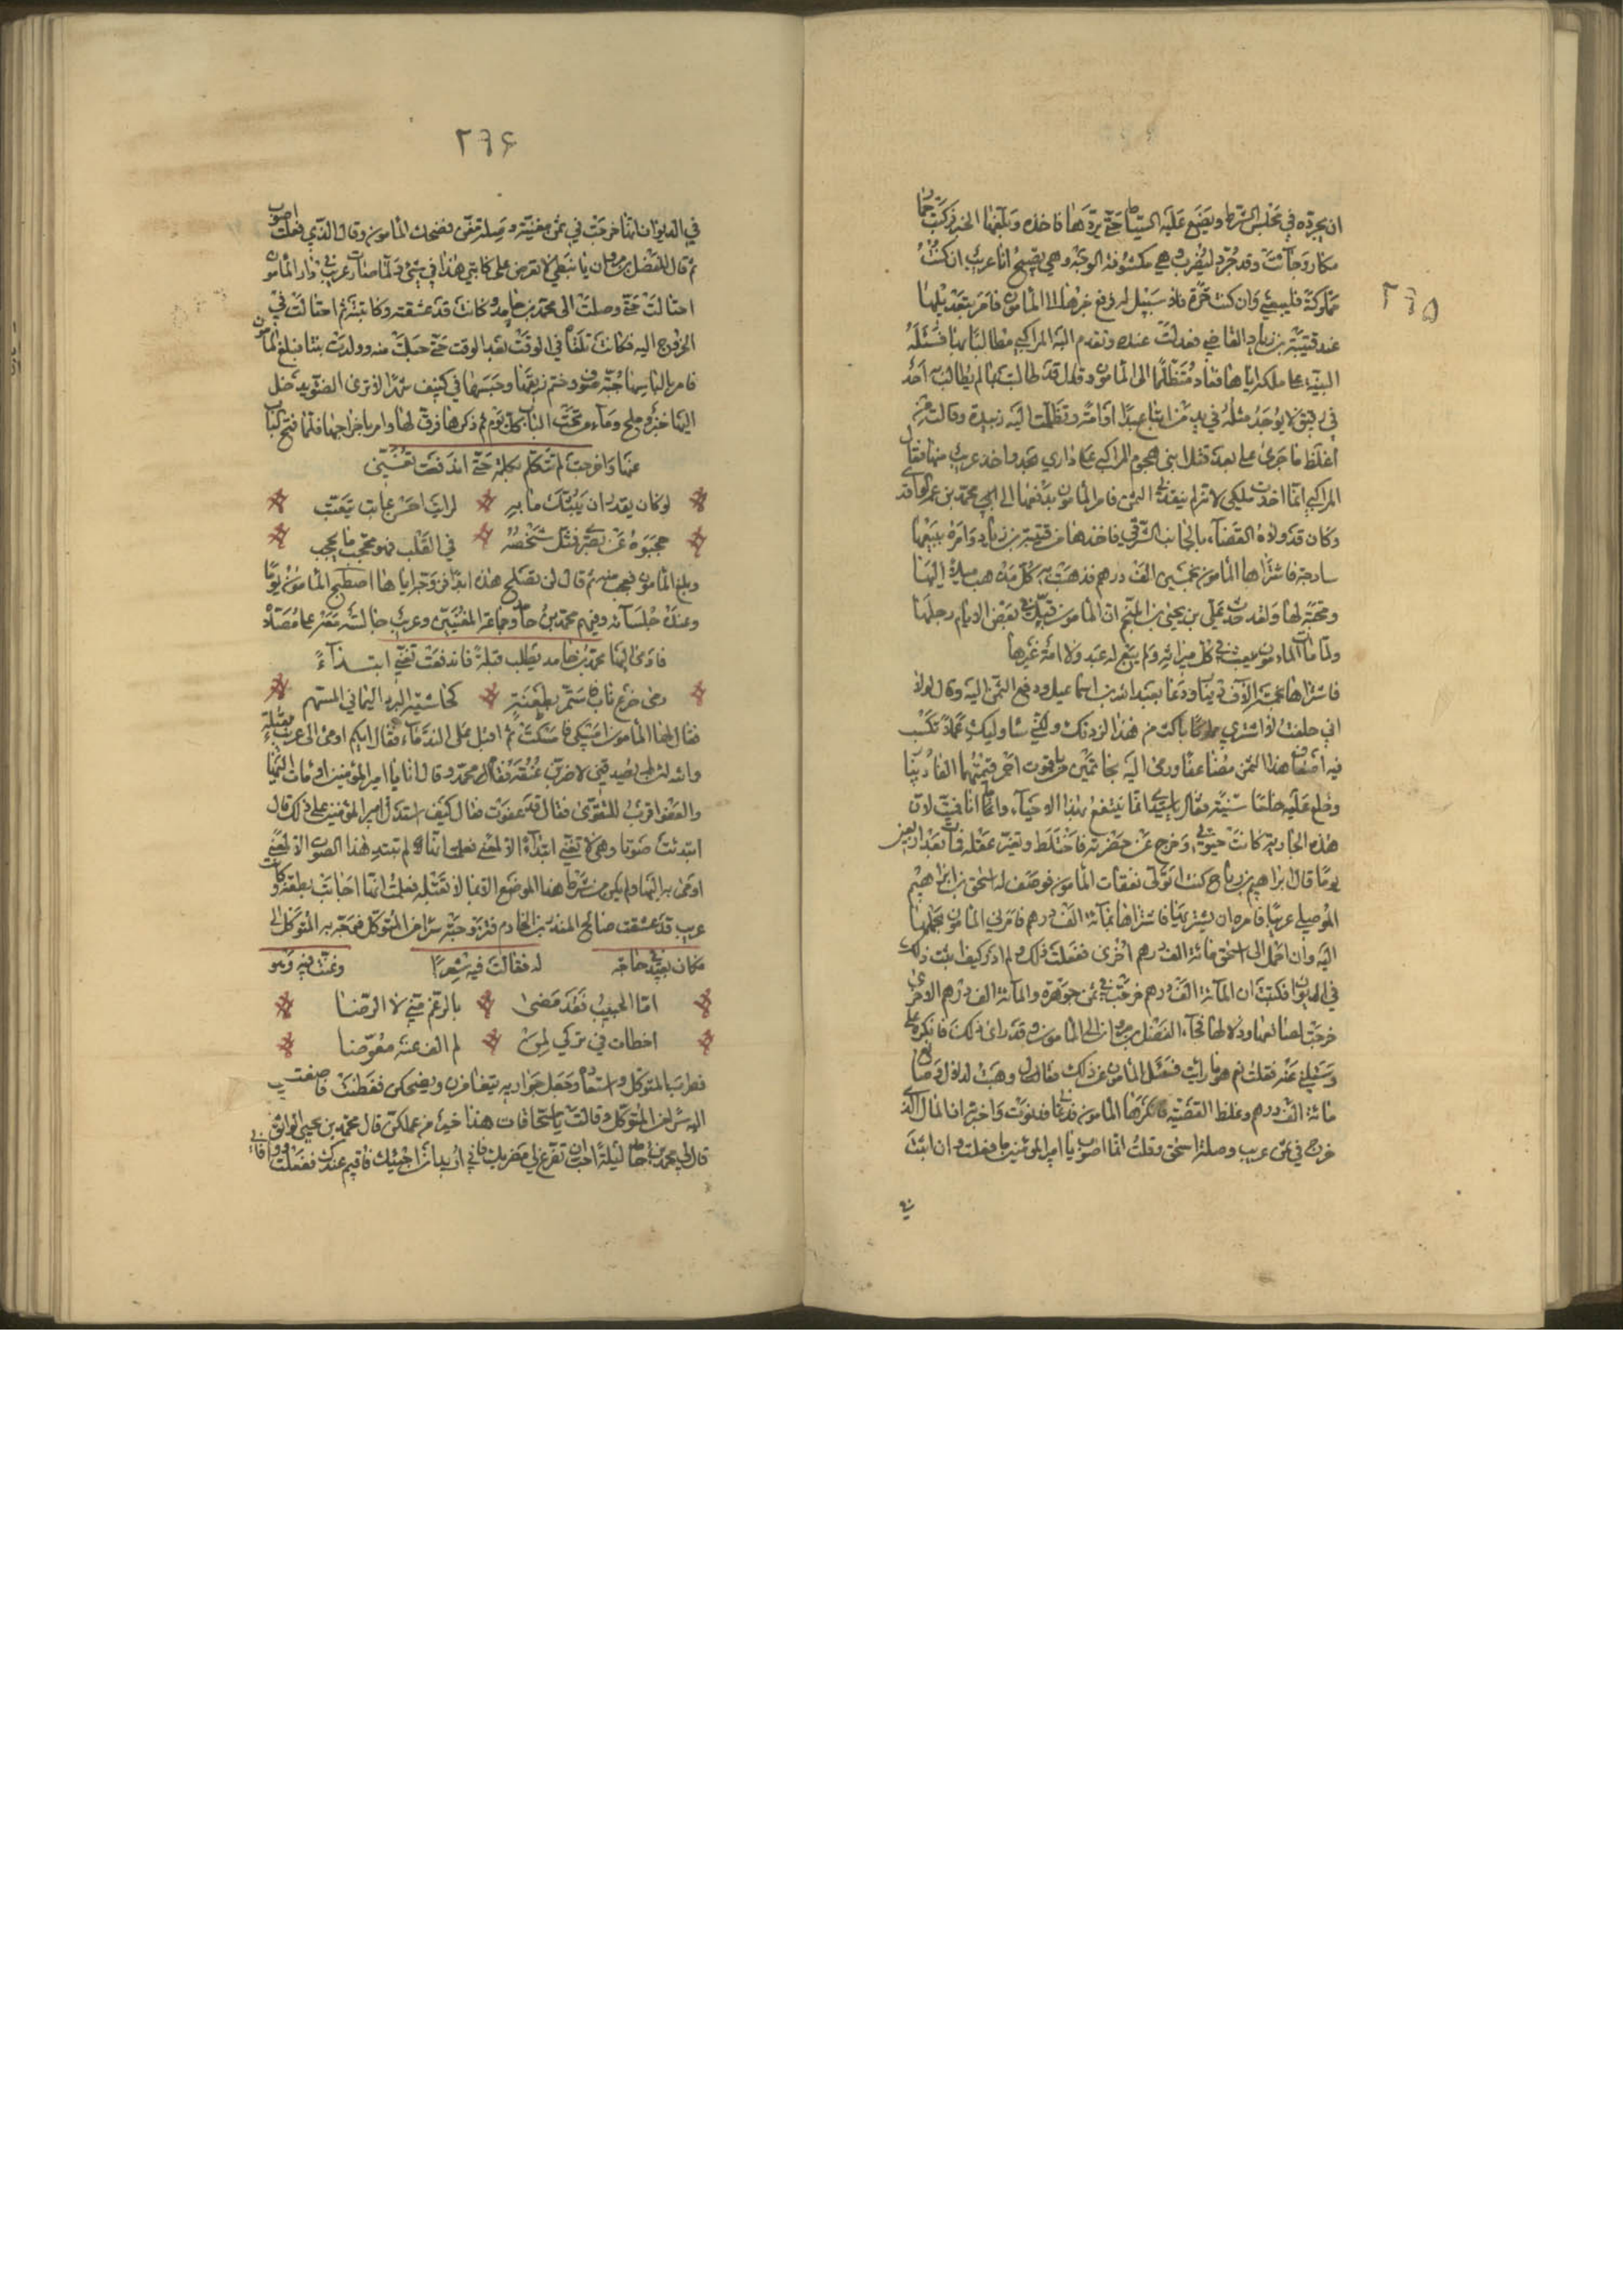 ٢٦٥
ان يجرده في مجلس الشرط ويضع عليه السياط حتى يردها فاخذه وبلغها الخبر فركبت حمار
مكار وجآءت وقد جرد ليضرب وهي مكشوفة الوجه وهي تصيح انا عريب ان كنت
مملوكة فليبعني وان كنت حرة فلا سبيل له فرفع خبرها الى المامون فامر بتعديلها
عند قتيبة بن زياد القاضي فعدلت عنده وتقدم اليه المراكبي مطالبا بها فسئله
البينة على ملكه اياها فعاد متظلما الى المامون وقال قد طالبت بما لم يطالب به احد
في رقيق لا يوجد مثله في يد من ابتاع عبدا او امة وتظلمت اليه زبيدة وقالت من
اغلظ ما جرى علي بعد قتل ابني هجوم المراكبي على داري واخذ عريب منها فقال
المراكبي انما اخذت ملكي لانه لم ينقدني الثمن فامر المامون بدفعها الى محمد بن عمر الواقدي
وكان قد ولاه القضآء بالجانب الشرقي فاخذها من قتيبة بن زياد وامره ببيعها
ساذجة فاشتراها المامون بخمسين الف درهم فذهبت به كل مذهب ميلا اليها
ومحبة لها ولقد حدث علي بن يحيى بن المنجم ان المامون قبل في بعض الايام رجلها
ولما مات المامون بيعت في ميراثه ولم يبع له عبد ولا امة غيرها
فاشتراها المعتصم بمائة الف
اني حلفت
فيه اضعاف هذا الثمن مضاعفا ورمى اليه بخاتمين من ياقوت احمر قيمتهما الفا دينار
وخلع عليه خلعا سنية فقال يا سيدي انما ينتفع بهذا الاحيآء واما انا فميت لان
هذه الجارية كانت حيوتي وخرج عن حضرته فاختلط وتغير عقله ومات بعد اربعين
يوما قال ابراهيم بن رباح كنت اتولى نفقات المامون فوصف له اسحق بن ابراهيم
الموصلي عريبا فامره ان يشتريها فاشتراها بمائة الف درهم فامرني المامون بحملها
اليه وان احمل الى اسحق مائة الف درهم اخرى ففعلت ذلك ولم ادر كيف اثبت ذلك
في الديوان فكتبت ان المائة الف درهم خرجت في ثمن جوهرة والمائة الف درهم الاخرى
خرجت لصائغها ودلالها فجآء الفضل بن مروان الى المامون وقد راى ذلك فانكره
وسئلني عنه فقلت نعم هو ما رايت فسئل المامون عن ذلك فقال وهبت لدلال وصائغ
مائة الف درهم وغلظ القصة فانكرها المامون فدعاني فدنوت واخبرته انه المال الذي
خرج في ثمن عريب وصلة اسحق وقلت ايما اصوب يا امير المؤمنين ما فعلت او ان اثبت
في
٢٦٦
في الديوان انها خرجت في ثمن مغنية وصلة مغن فضحك المامون وقال الذي فعلت اصوب
ثم قال للفضل بن مروان يا نبطي لا تعرض على كاتبي هذا في شئ ولما صارت عريب في دار المامون
احتالت حتى وصلت الى محمد بن حامد وكانت قد عشقته وكاتبته ثم احتالت في
الخروج اليه فكانت تلقاه في الوقت بعد الوقت حتى حبلت منه وولدت بنتا فبلغ المامون
فامر بالباسها جبة صوف وختم زيقها وحبسها في كنيف شهرا لا ترى الضوء يدخل
اليها خبز وملح ومآء من تحت الباب كل يوم ثم ذكرها فرق لها وامر باخراجها فلما فتح الباب
عنها واخرجت لم تتكلم بكلمة حتى اندفعت تغني
لو كان يقدر ان يبثك ما به لرايت احسن عاتب يتعتب
حجبوه عن بصري فمثل شخصه في القلب فهو محجب ما يحجب
وبلغ المامون فعجب منه ثم قال لن تصلح هذه ابدا فزوجها اياها اصطبح المامون يوما
وعنده جلسآئه وفيهم محمد بن حامد وجماعة المغنيين وعريب جالسة معه على مصلاه
فاومى اليها محمد بن حامد يطلب قبلة فاندفعت تغني ابتدآءً
رمى ضرع ناب فاستمر بطعنة كحاشية البرد اليماني المسهم
فقال لها المامون امسكي فامسكت ثم اقبل على الندمآء فقال ايكم اومى الى عريب بقبلة
والله لئن لم يصدقني لاضربن عنقه فقام محمد وقال انا يا امير المؤمنين اومات اليها
والعفو اقرب للتقوى فقال قد عفوت فقال كيف استدل امير المؤمنين على ذلك قال
ابتدئت صوتا وهي لا تغني ابتدآء الا لمعنى فعلمت انها لم تبتد بهذا الصوت الا لمعنى
اومئ به اليها ولم يكن من شرط هذا الموضع الا ايمآء بقبلة فعلمت انها اجابت بطعنة وكانت
عريب قد عشقت صالح المنذري الخادم فتزوجته سرا من المتوكل فوجه به المتوكل الى
مكان بعيد في حاجة له فقالت فيه شعرا وغنت فيه وهو
اما الحبيب فقد مضى بالرغم مني لا الرضا
اخطات في تركي لمن لم الف عنه معوضا
فطرب المتوكل واستعاده وجعل جواريه يتغامزن ويضحكن ففطنت فاصغت
اليهن سرا من المتوكل وقالت يا سحاقات هذا خير من عملكن قال محمد بن يحيى الواثقي
قال لي محمد بن حامد ليلة احب ان تفرغ لي مضربك فاني اريد ان اجيئك فاقيم عندك ففعلت ووافاني